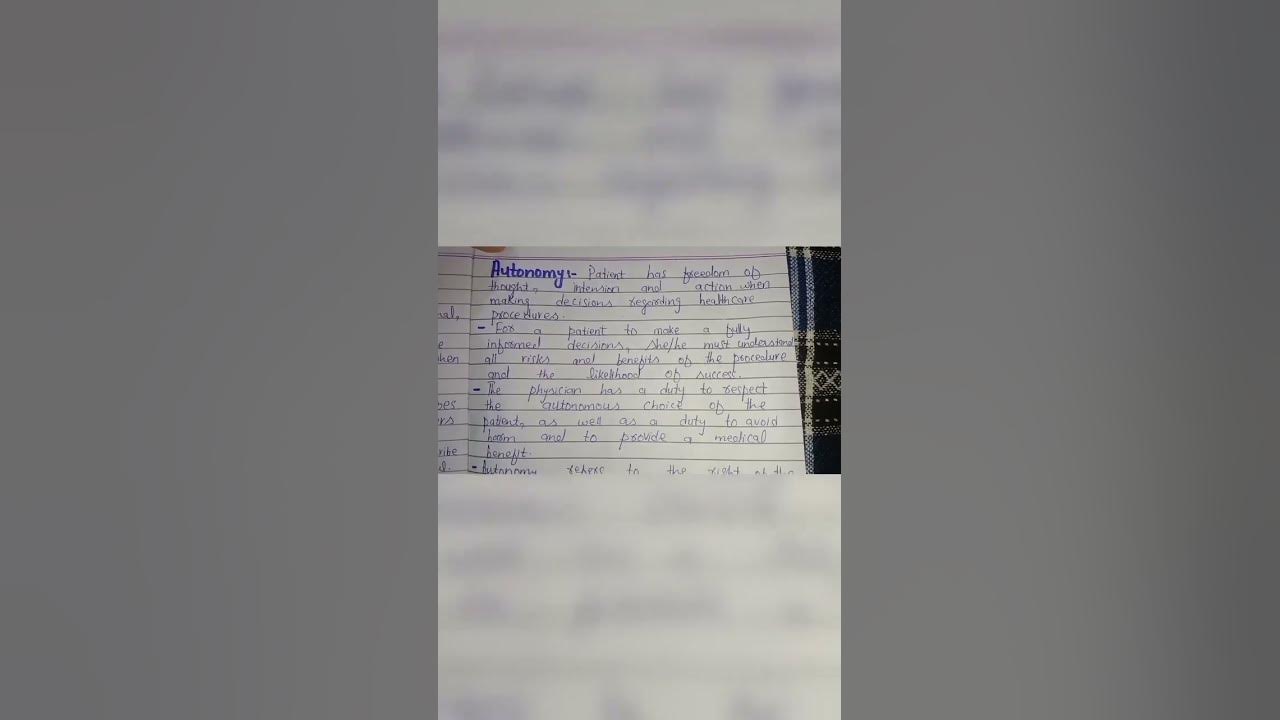 Autonomy:- Patient has freedom of
thought, intension and action when
making decisions regarding healthcare
procedures.
- For a patient to make a fully
informed decisions, she/he must understand
all risks and benefits of the procedure
and the likelihood of success.
- The physician has a duty to respect
the autonomous choice of the
patient, as well as a duty to avoid
harm and to provide a medical
benefit.
- Autonomy refers to the right of the